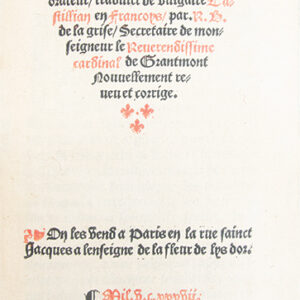 orateur/ traduict de vulgaire Ca-
stillian en Francoys/ par. R. B.
de la grise/ Secretaire de mon-
seigneur le Reverendissime
cardinal de Grantmont
Nouvellement re-
veu et corrige.
On les vend a Paris en la rue sainct
Jacques a lenseigne de la fleur de lys dor.
Mil. v. c. xxxvii.